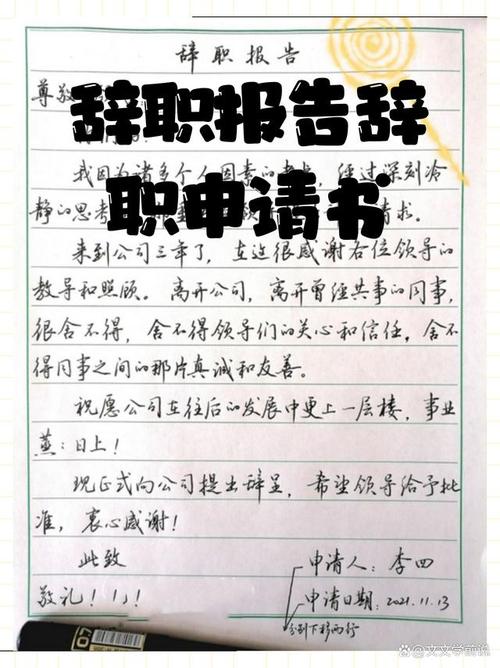 辞职报告
尊敬
辞职报告辞
职申请书
我因为诸多个人因素的考虑，经过深刻冷
静的思考 请求。
来到公司三年了，在这很感谢各位领导的
教导和照顾。离开公司，离开曾经共事的同事，
很舍不得，舍不得领导们的关心和信任，舍不
得同事之间的那片真诚和友善。
祝愿公司在往后的发展中更上一层楼，事业
蒸：日上！
现正式向公司提出辞呈，希望领导给予批
准，衷心感谢！
此致
敬礼！！！
申请人：李四
申请日期：2021.11.13
分别下移两行
07
@文文学前说